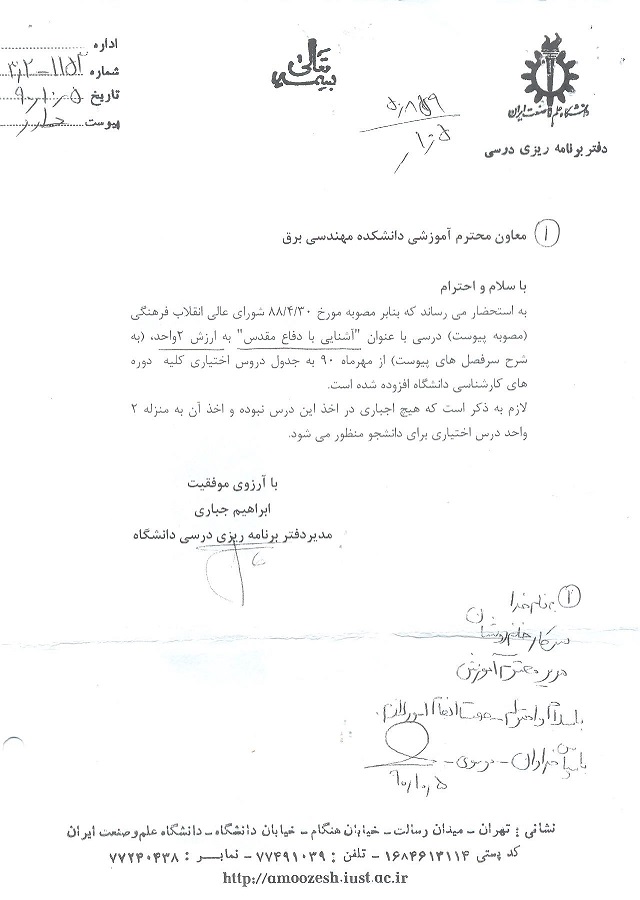 بسمه تعالی
دانشگاه علم و صنعت ایران
دفتر برنامه ریزی درسی
اداره
شماره
تاریخ ۹۰،۱۰،۵
پیوست دارد
۵۰۸۵۹
۱۰،۵
۱ معاون محترم آموزشی دانشکده مهندسی برق
با سلام و احترام
به استحضار می رساند که بنابر مصوبه مورخ ۸۸/۴/۳۰ شورای عالی انقلاب فرهنگی
(مصوبه پیوست) درسی با عنوان "آشنایی با دفاع مقدس" به ارزش ۲واحد، (به
شرح سرفصل های پیوست) از مهرماه ۹۰ به جدول دروس اختیاری کلیه دوره
های کارشناسی دانشگاه افزوده شده است.
لازم به ذکر است که هیچ اجباری در اخذ این درس نبوده و اخذ آن به منزله ۲
واحد درس اختیاری برای دانشجو منظور می شود.
با آرزوی موفقیت
ابراهیم جباری
مدیردفتر برنامه ریزی درسی دانشگاه
۲ به نام خدا
سرکار خانم
مدیر محترم آموزش
باسلام و احترام
با سپاس فراوان - موسوی -
۹۰،۱۰،۵
نشانی : تهران - میدان رسالت - خیابان هنگام - خیابان دانشگاه - دانشگاه علم و صنعت ایران
کد پستی ۱۶۸۴۶۱۳۱۱۴ - تلفن : ۷۷۴۹۱۰۳۹ - نمابر : ۷۷۲۴۰۴۳۸
http://amoozesh.iust.ac.ir